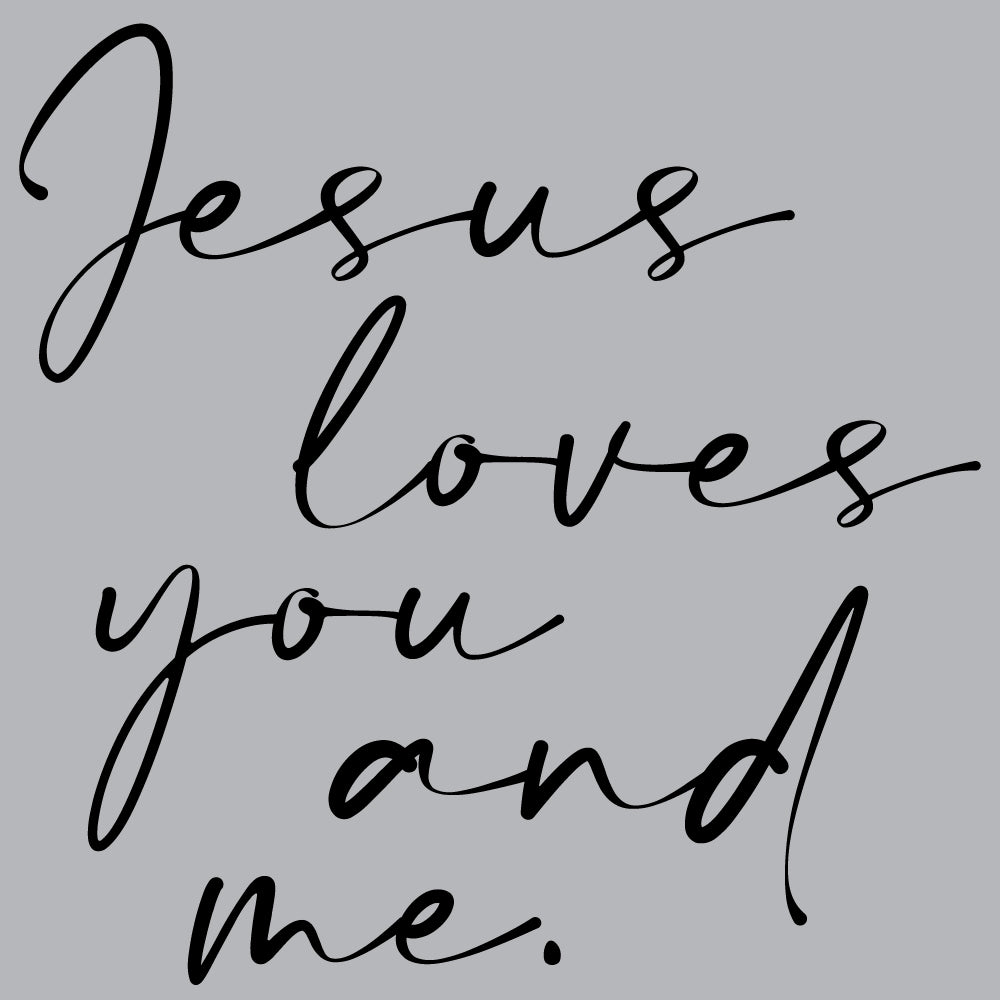 Jesus
loves
you
and
me.